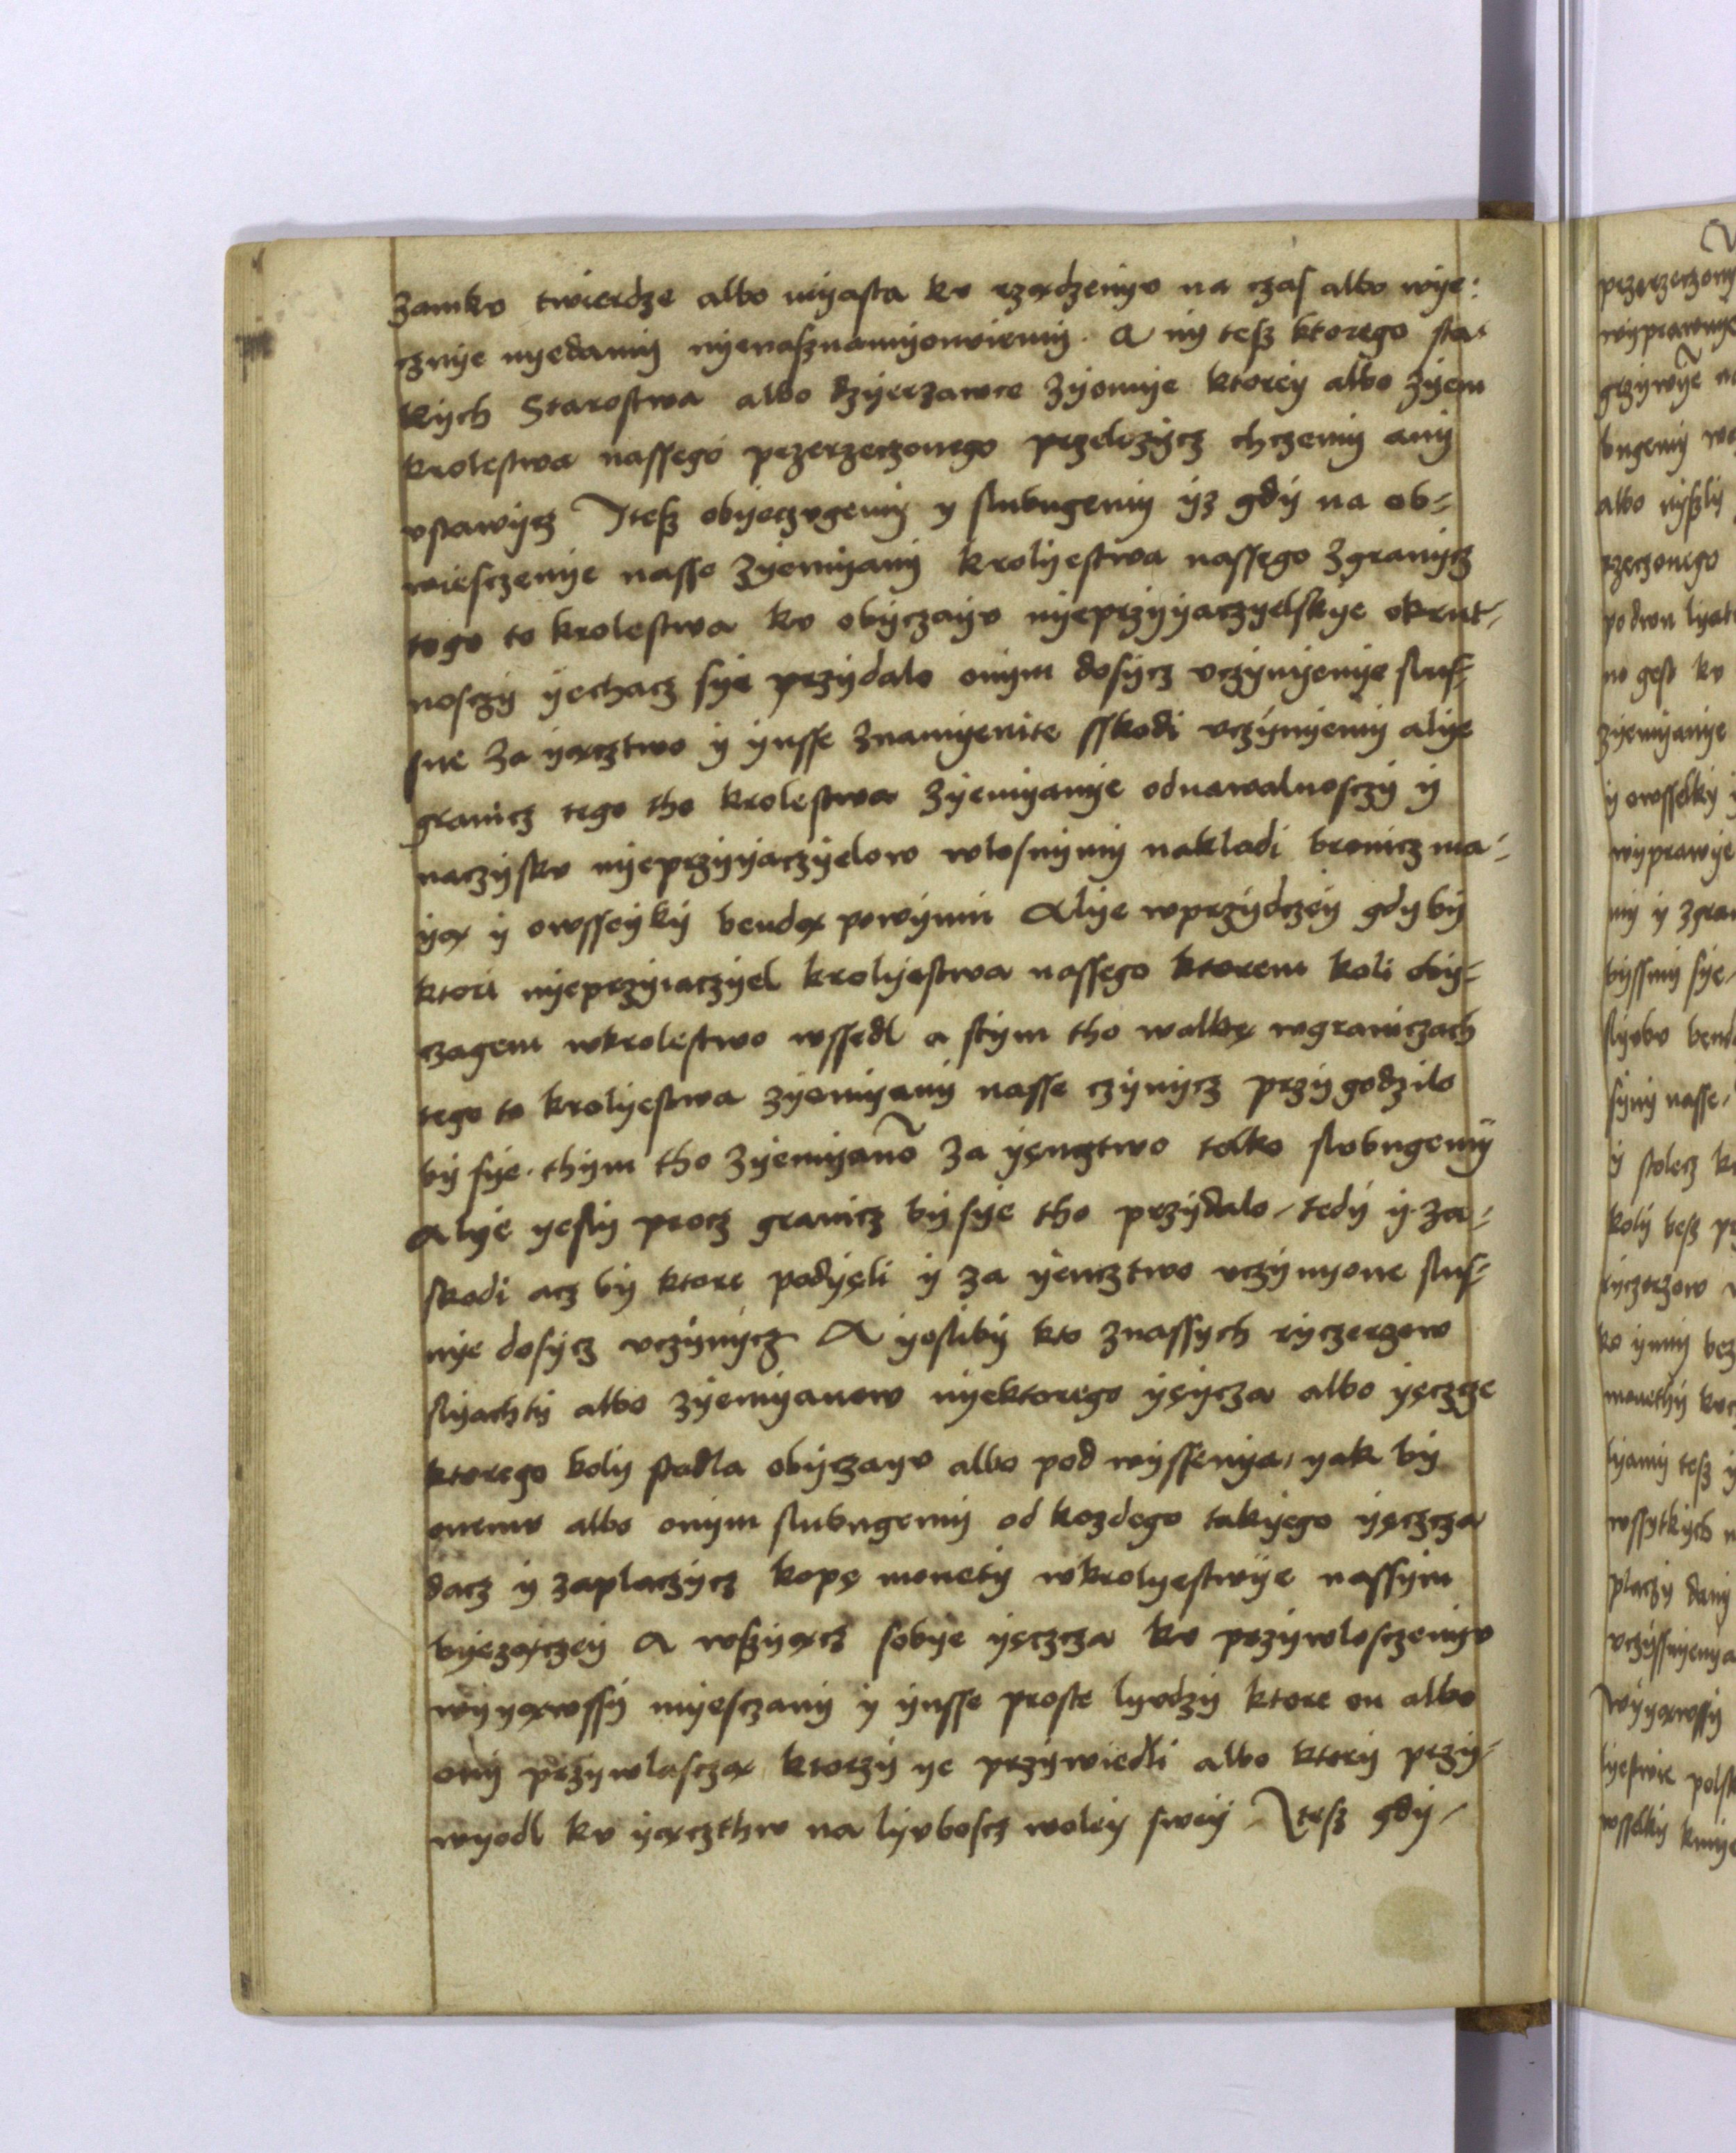 zamkv twierdze albo myasta kv rządzenyv na czas albo wye:
cznye nyedamy nyenasznamyonviemy. A ny tesz ktorego sta-
kych Starostwa albo dzyerzawce zyemye ktorey albo zyem
krolestwa nassego przerzeczonego przelozycz chczemy any
vstawycz Itesz obyeczvgemy y slubugemy yz gdy na ob-
wiesczenye nasse zyemyany krolyestwa nassego zgranycz
tego to krolestwa kv obyczayv nyeprzyyaczyelskye okrut-
nosczy yechacz sye przydalo onym dosycz vczynyenye slus-
sne za yącztwo y ynsse znamyenite sskodi vczynyemy alye
granicz tego tho krolestwa zyemyanye odnawalnosczy y
naczysku nyeprzyyaczyelow wlosnymy nakladi bronicz ma-
yą y owsseyky bendą powynni Alye wprzydczey gdyby
ktori nyeprzyiaczyel krolyestwa nassego ktorem koli oby-
czagem wkrolestwo wssedl a stym tho walkę wgraniczach
tego to krolyestwa zyemyany nasse czynycz przygodzilo
by sye. thym tho zyemyanō za yęncztwo telko slvbugemy
Alye yesly procz granicz by sye tho przydalo, tedy y za-
skodi acz by ktore podyęli y za yencztwo vczynyone slus-
nye dosycz vczynycz A yesliby kto znassych ryczerzow
slyachty albo zyemyanow nyektorego yęycza albo yęczcze
ktorego koly stadla obyczayv albo pod wyssenya, yak by
onemv albo onym slubugemy od kozdego takyego yęczcza
dacz y zaplaczycz kopę monety wkrolyestwye nassym
byezączey A wszyącz sobye yęczcza kv przywlosczenyv
wyyąwssy myesczany y ynsse proste lyvdzy ktore on albo
ony przywlasczą ktorzy ye przywiedli albo ktory przy-
wyodl kv yączthw na lyvboscz woley swey Itesz gdy-